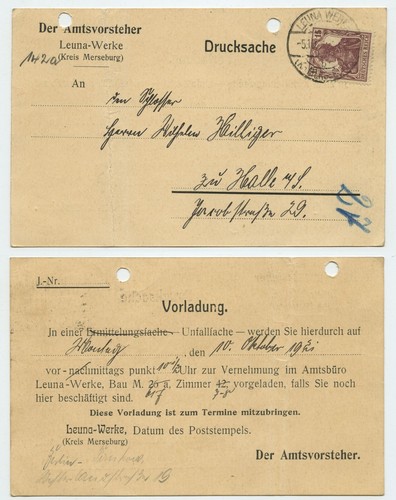 Der Amtsvorsteher
Leuna-Werke
(Kreis Merseburg)
Drucksache
LEUNA WERKE
An
den Schlosser
Herrn Wilhelm Hilliger
zu Halle a/S.
Jacobstraße 29.
J.-Nr.
Vorladung.
In einer Ermittelungssache - Unfallsache - werden Sie hierdurch auf
Montag, den 10. Oktober 1921
vor-nachmittags punkt 10 1/2 Uhr zur Vernehmung im Amtsbüro
Leuna-Werke, Bau M. 26 a, Zimmer 12, vorgeladen, falls Sie noch
hier beschäftigt sind.
Diese Vorladung ist zum Termine mitzubringen.
Leuna-Werke, Datum des Poststempels.
(Kreis Merseburg)
Der Amtsvorsteher.